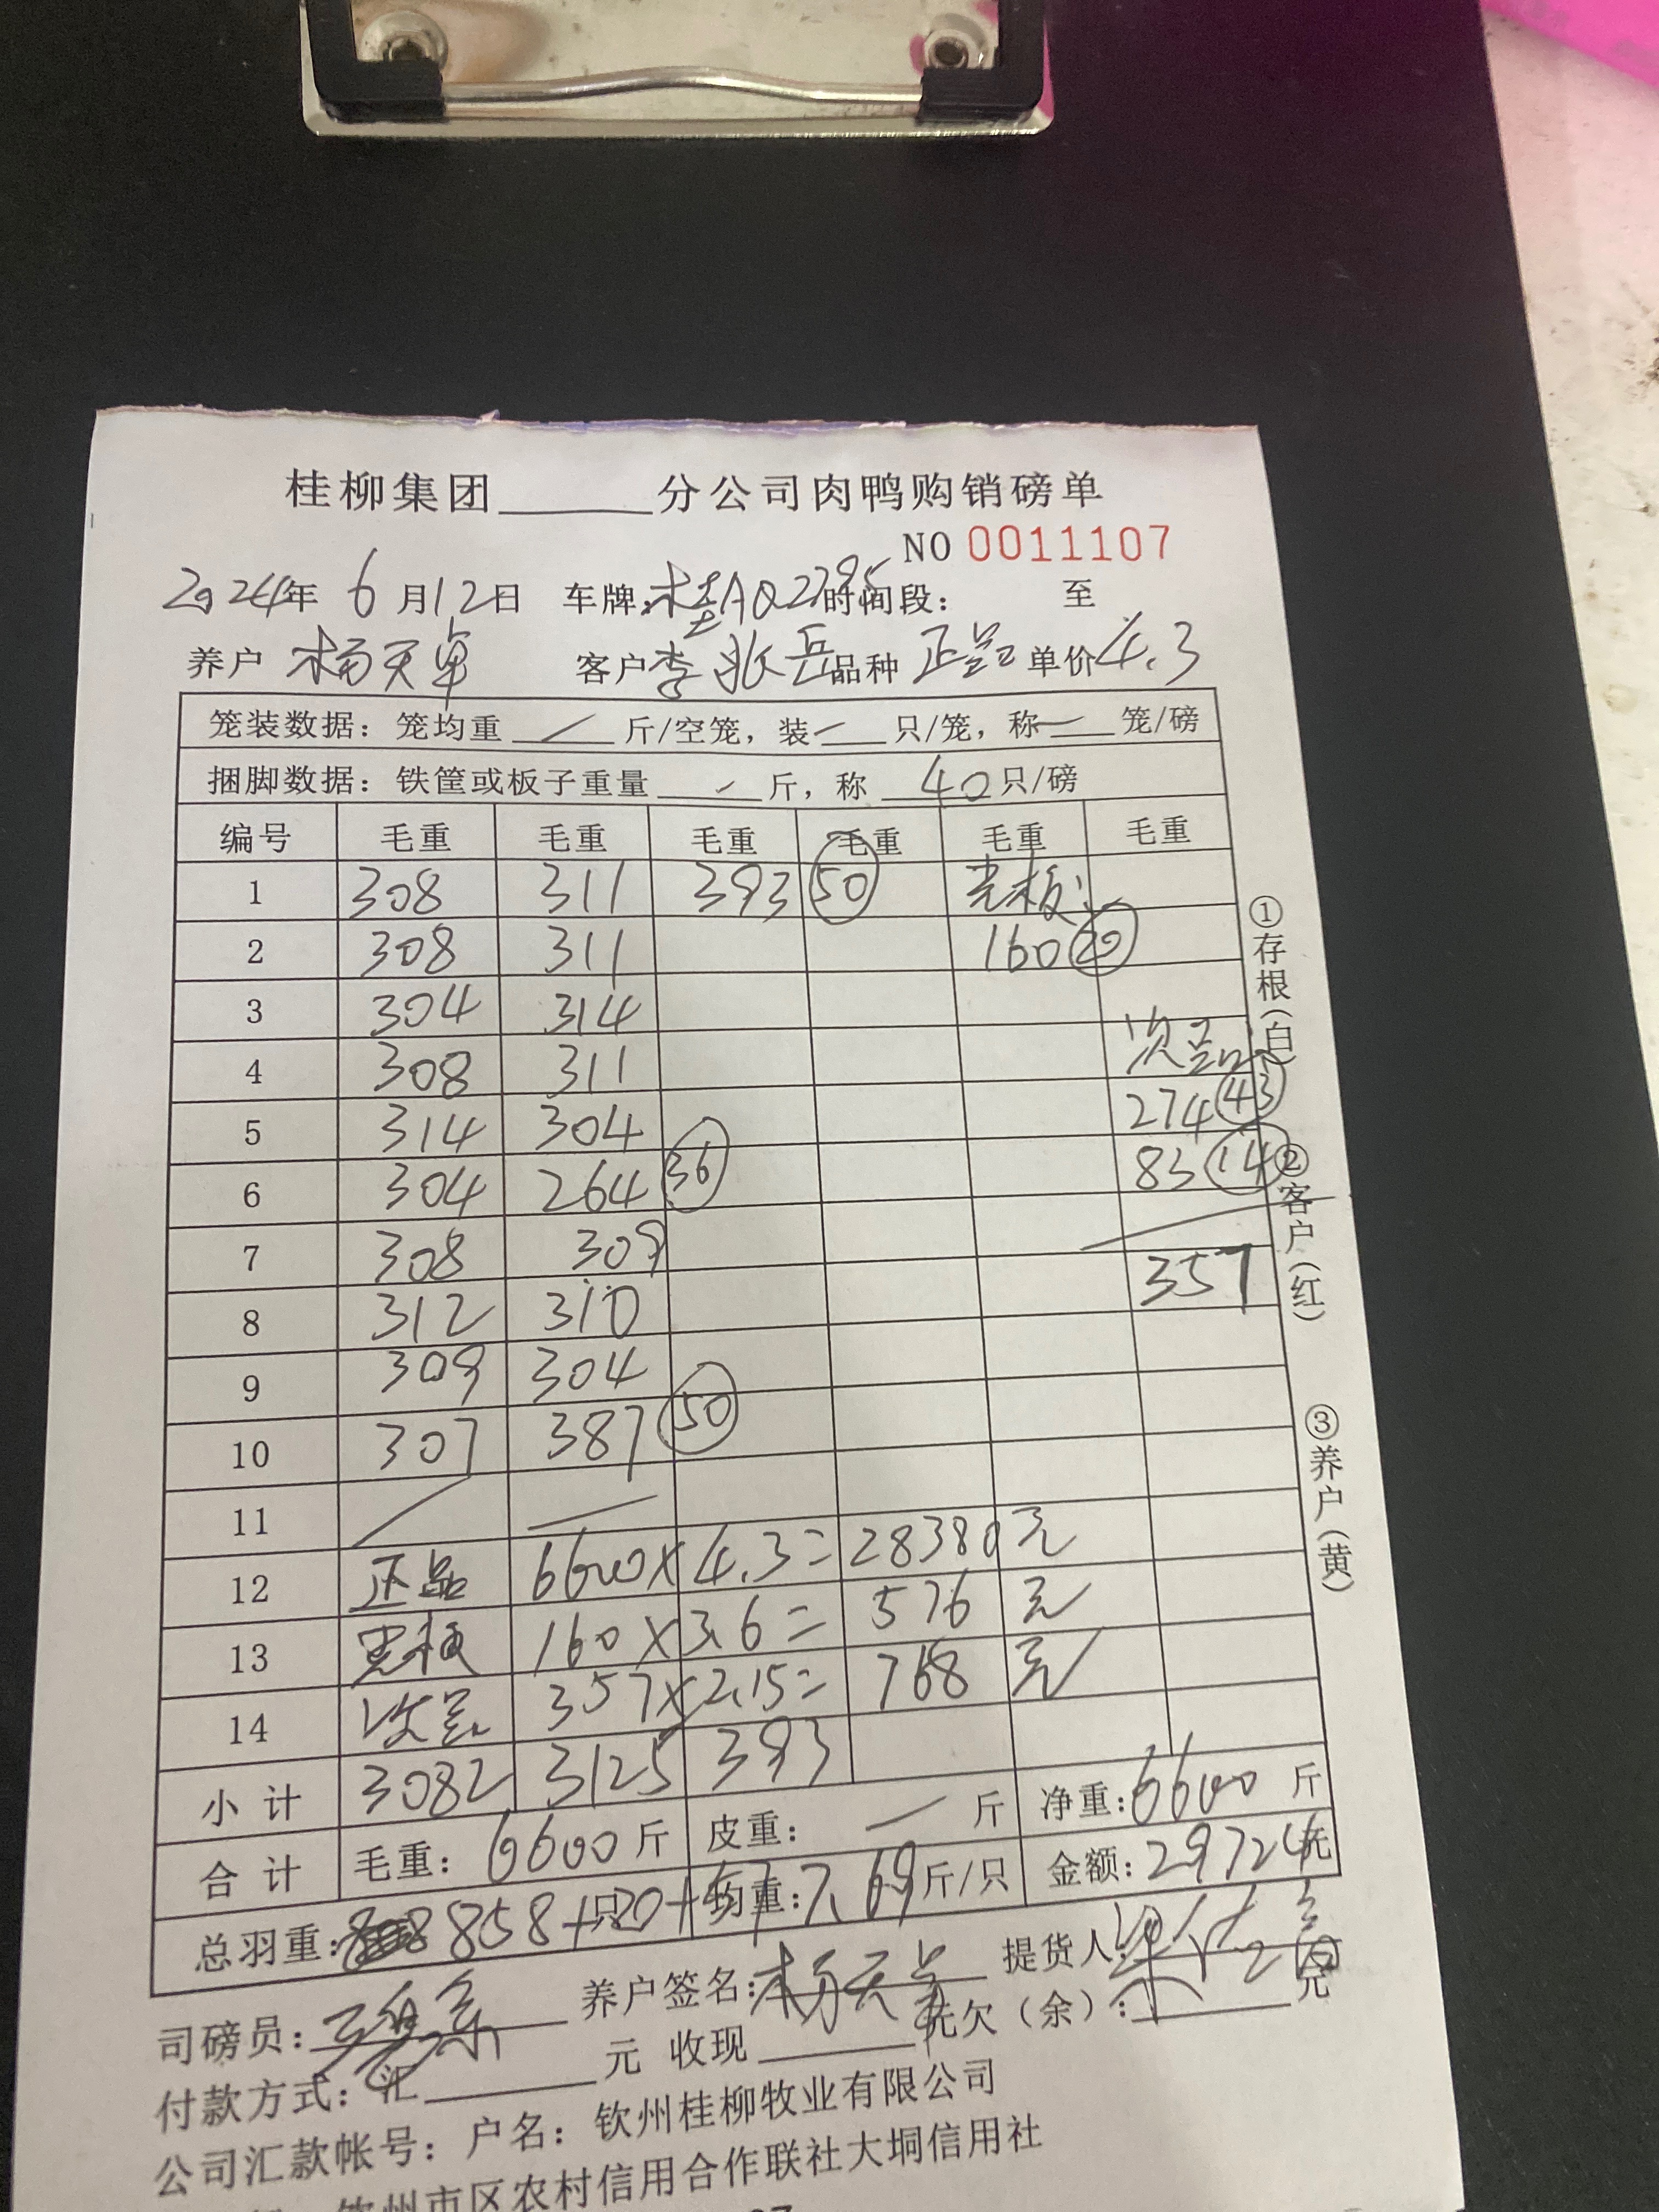 桂柳集团______分公司肉鸭购销磅单
NO 0011107
2024年 6月12日 车牌:桂AQ2795 时间段: 至
养户 杨天卓 客户 李兆岳 品种 正品 单价 4.3
笼装数据: 笼均重 / 斤/空笼, 装 / 只/笼, 称 / 笼/磅
捆脚数据: 铁筐或板子重量 / 斤, 称 40 只/磅
编号 毛重 毛重 毛重 毛重 毛重 毛重
1 308 311 393 50 光板:
2 308 311 160 20
3 304 314
4 308 311 次品:
5 314 304 274 43
6 304 264 36 83 14
7 308 309
8 312 310 357
9 309 304
10 307 387 50
11 / /
12 正品 6600×4.3=28380元
13 光板 160×3.6=576元
14 次品 357×2.15=768元
小计 3082 3125 393
合计 毛重: 6600斤 皮重: / 斤 净重: 6600 斤
总羽重: 858+20+57 只 均重: 7.69 斤/只 金额: 29724元
司磅员: 养户签名: 杨天卓 提货人:
付款方式: 汇______元 收现______元 欠(余):______元
公司汇款帐号: 户名: 钦州桂柳牧业有限公司
钦州市区农村信用合作联社大垌信用社
①存根(白)
②客户(红)
③养户(黄)